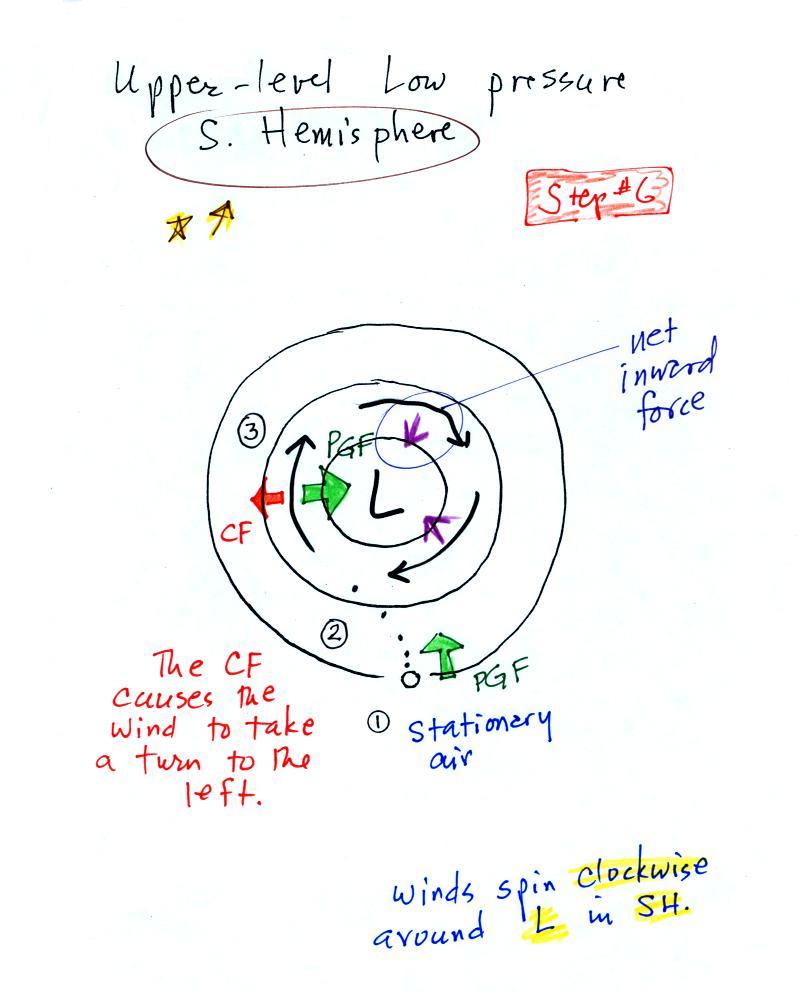 Upper-level Low pressure
S. Hemisphere
Step #6
net
inward
force
③
PGF
L
CF
②
PGF
The CF
causes the
wind to take
a turn to the
left.
① Stationary
air
winds spin clockwise
around L in SH.